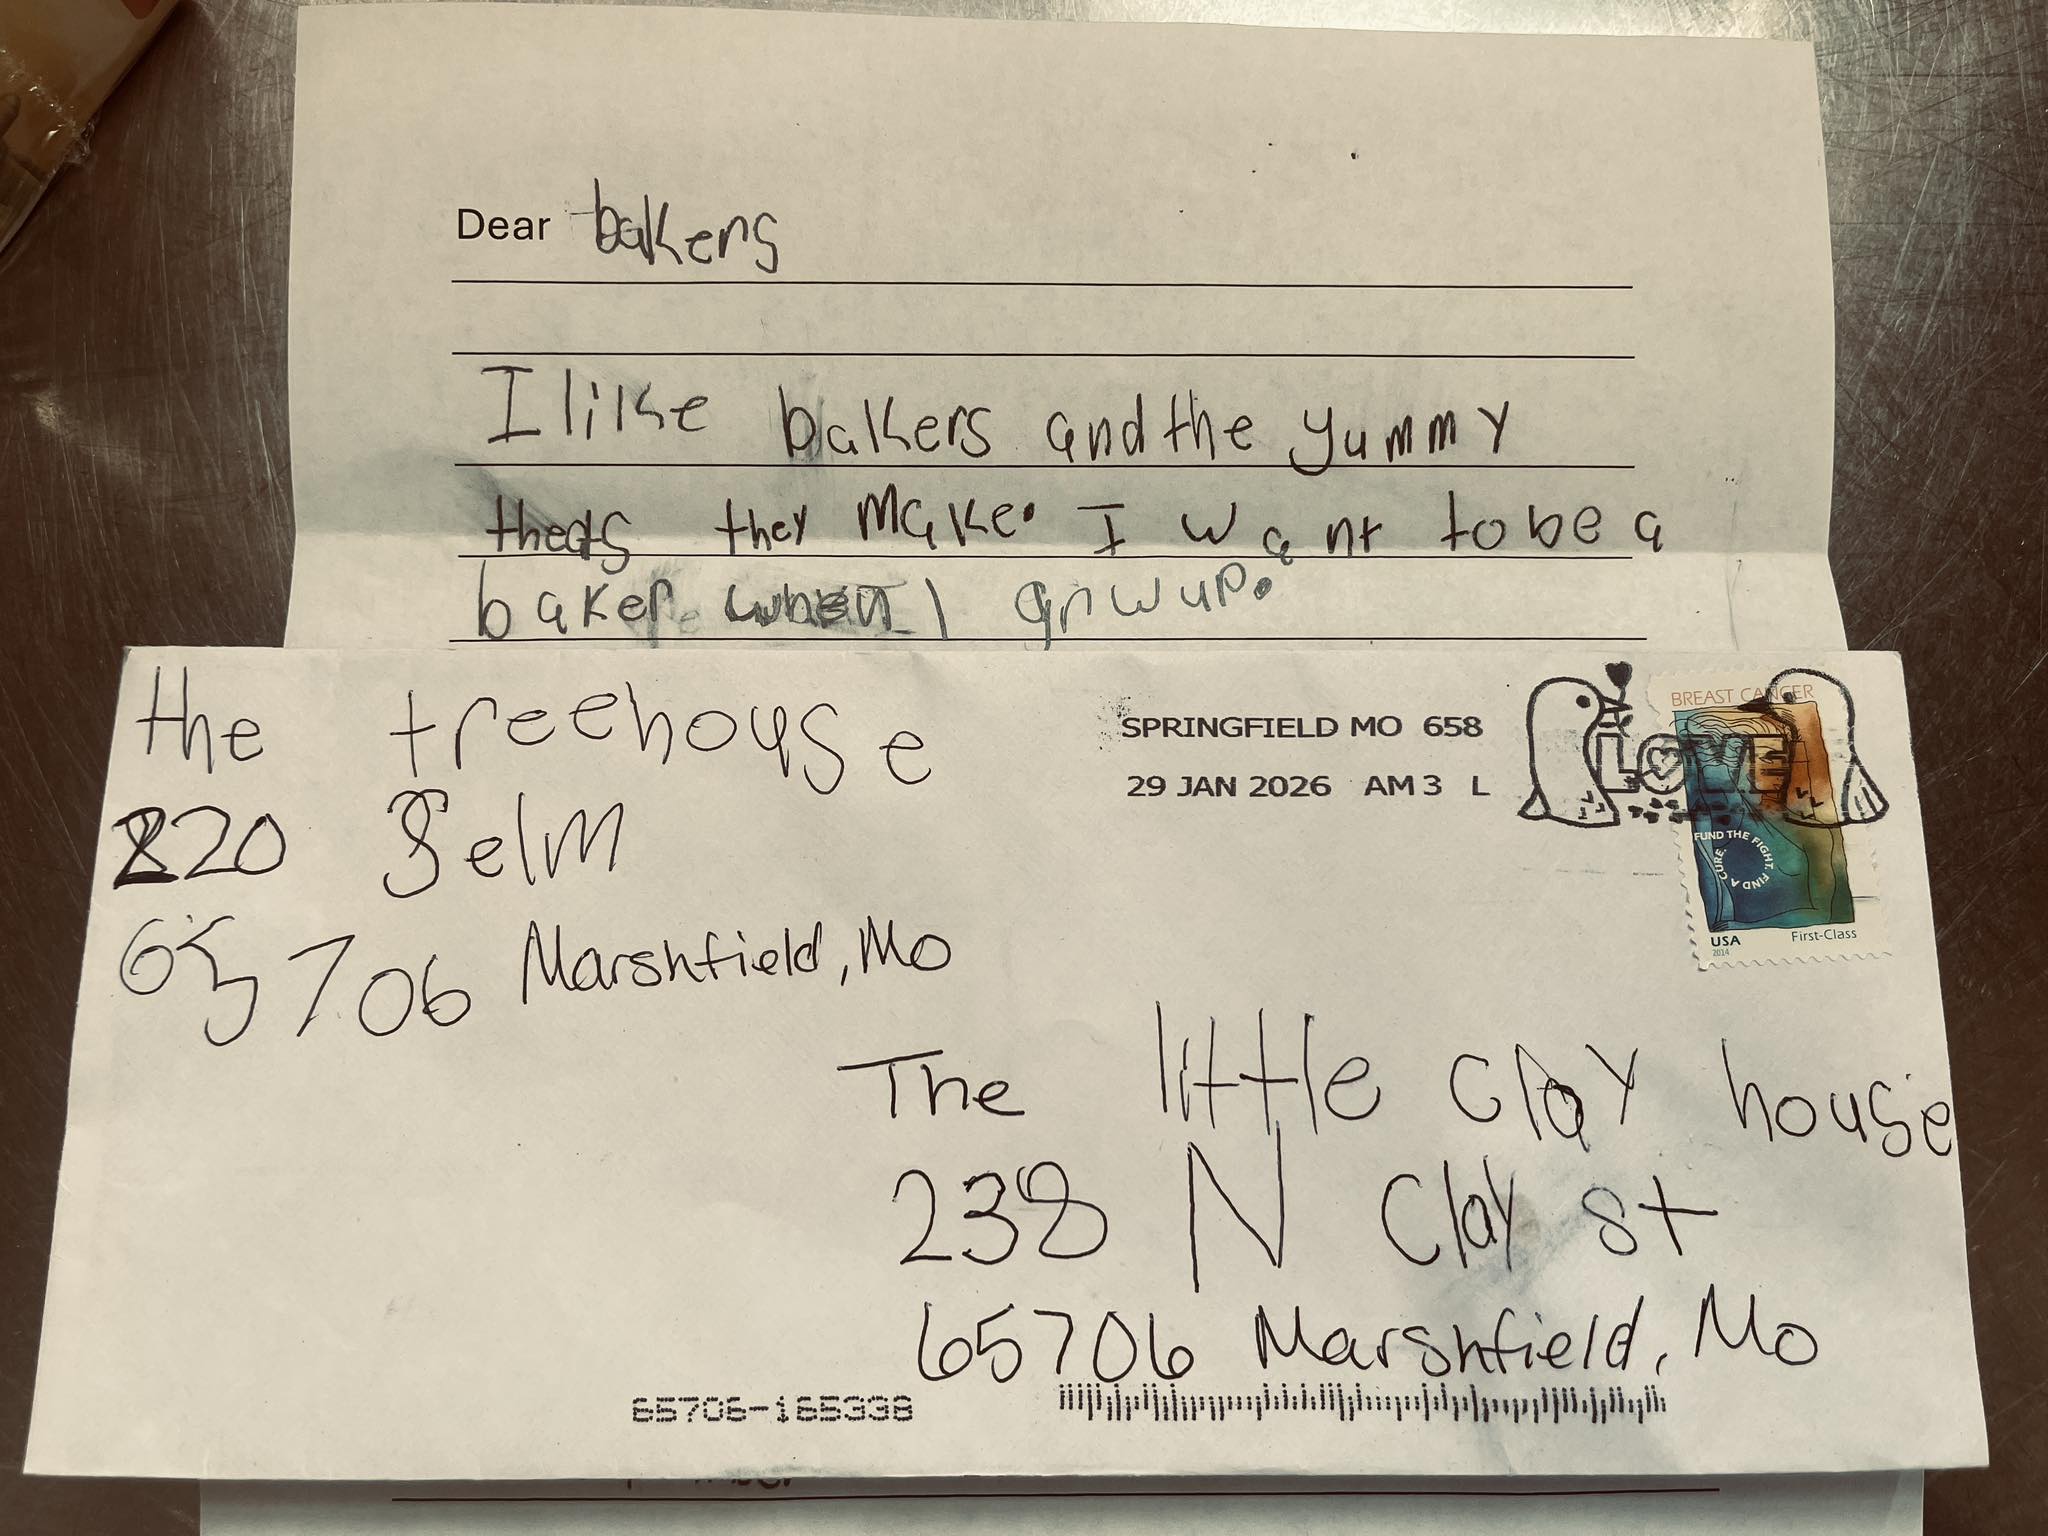 Dear bakers
I like bakers and the yummy
they make. I want to be a
baker when I grwup.
the treehouse
220 Selm
65706 Marshfield, Mo
SPRINGFIELD MO 658
29 JAN 2026 AM 3 L
LOVE
BREAST CANCER
FUND THE FIGHT. FIND A CURE.
USA First-Class
2014
The little clay house
238 N Clay st
65706 Marshfield, Mo
65706-165338